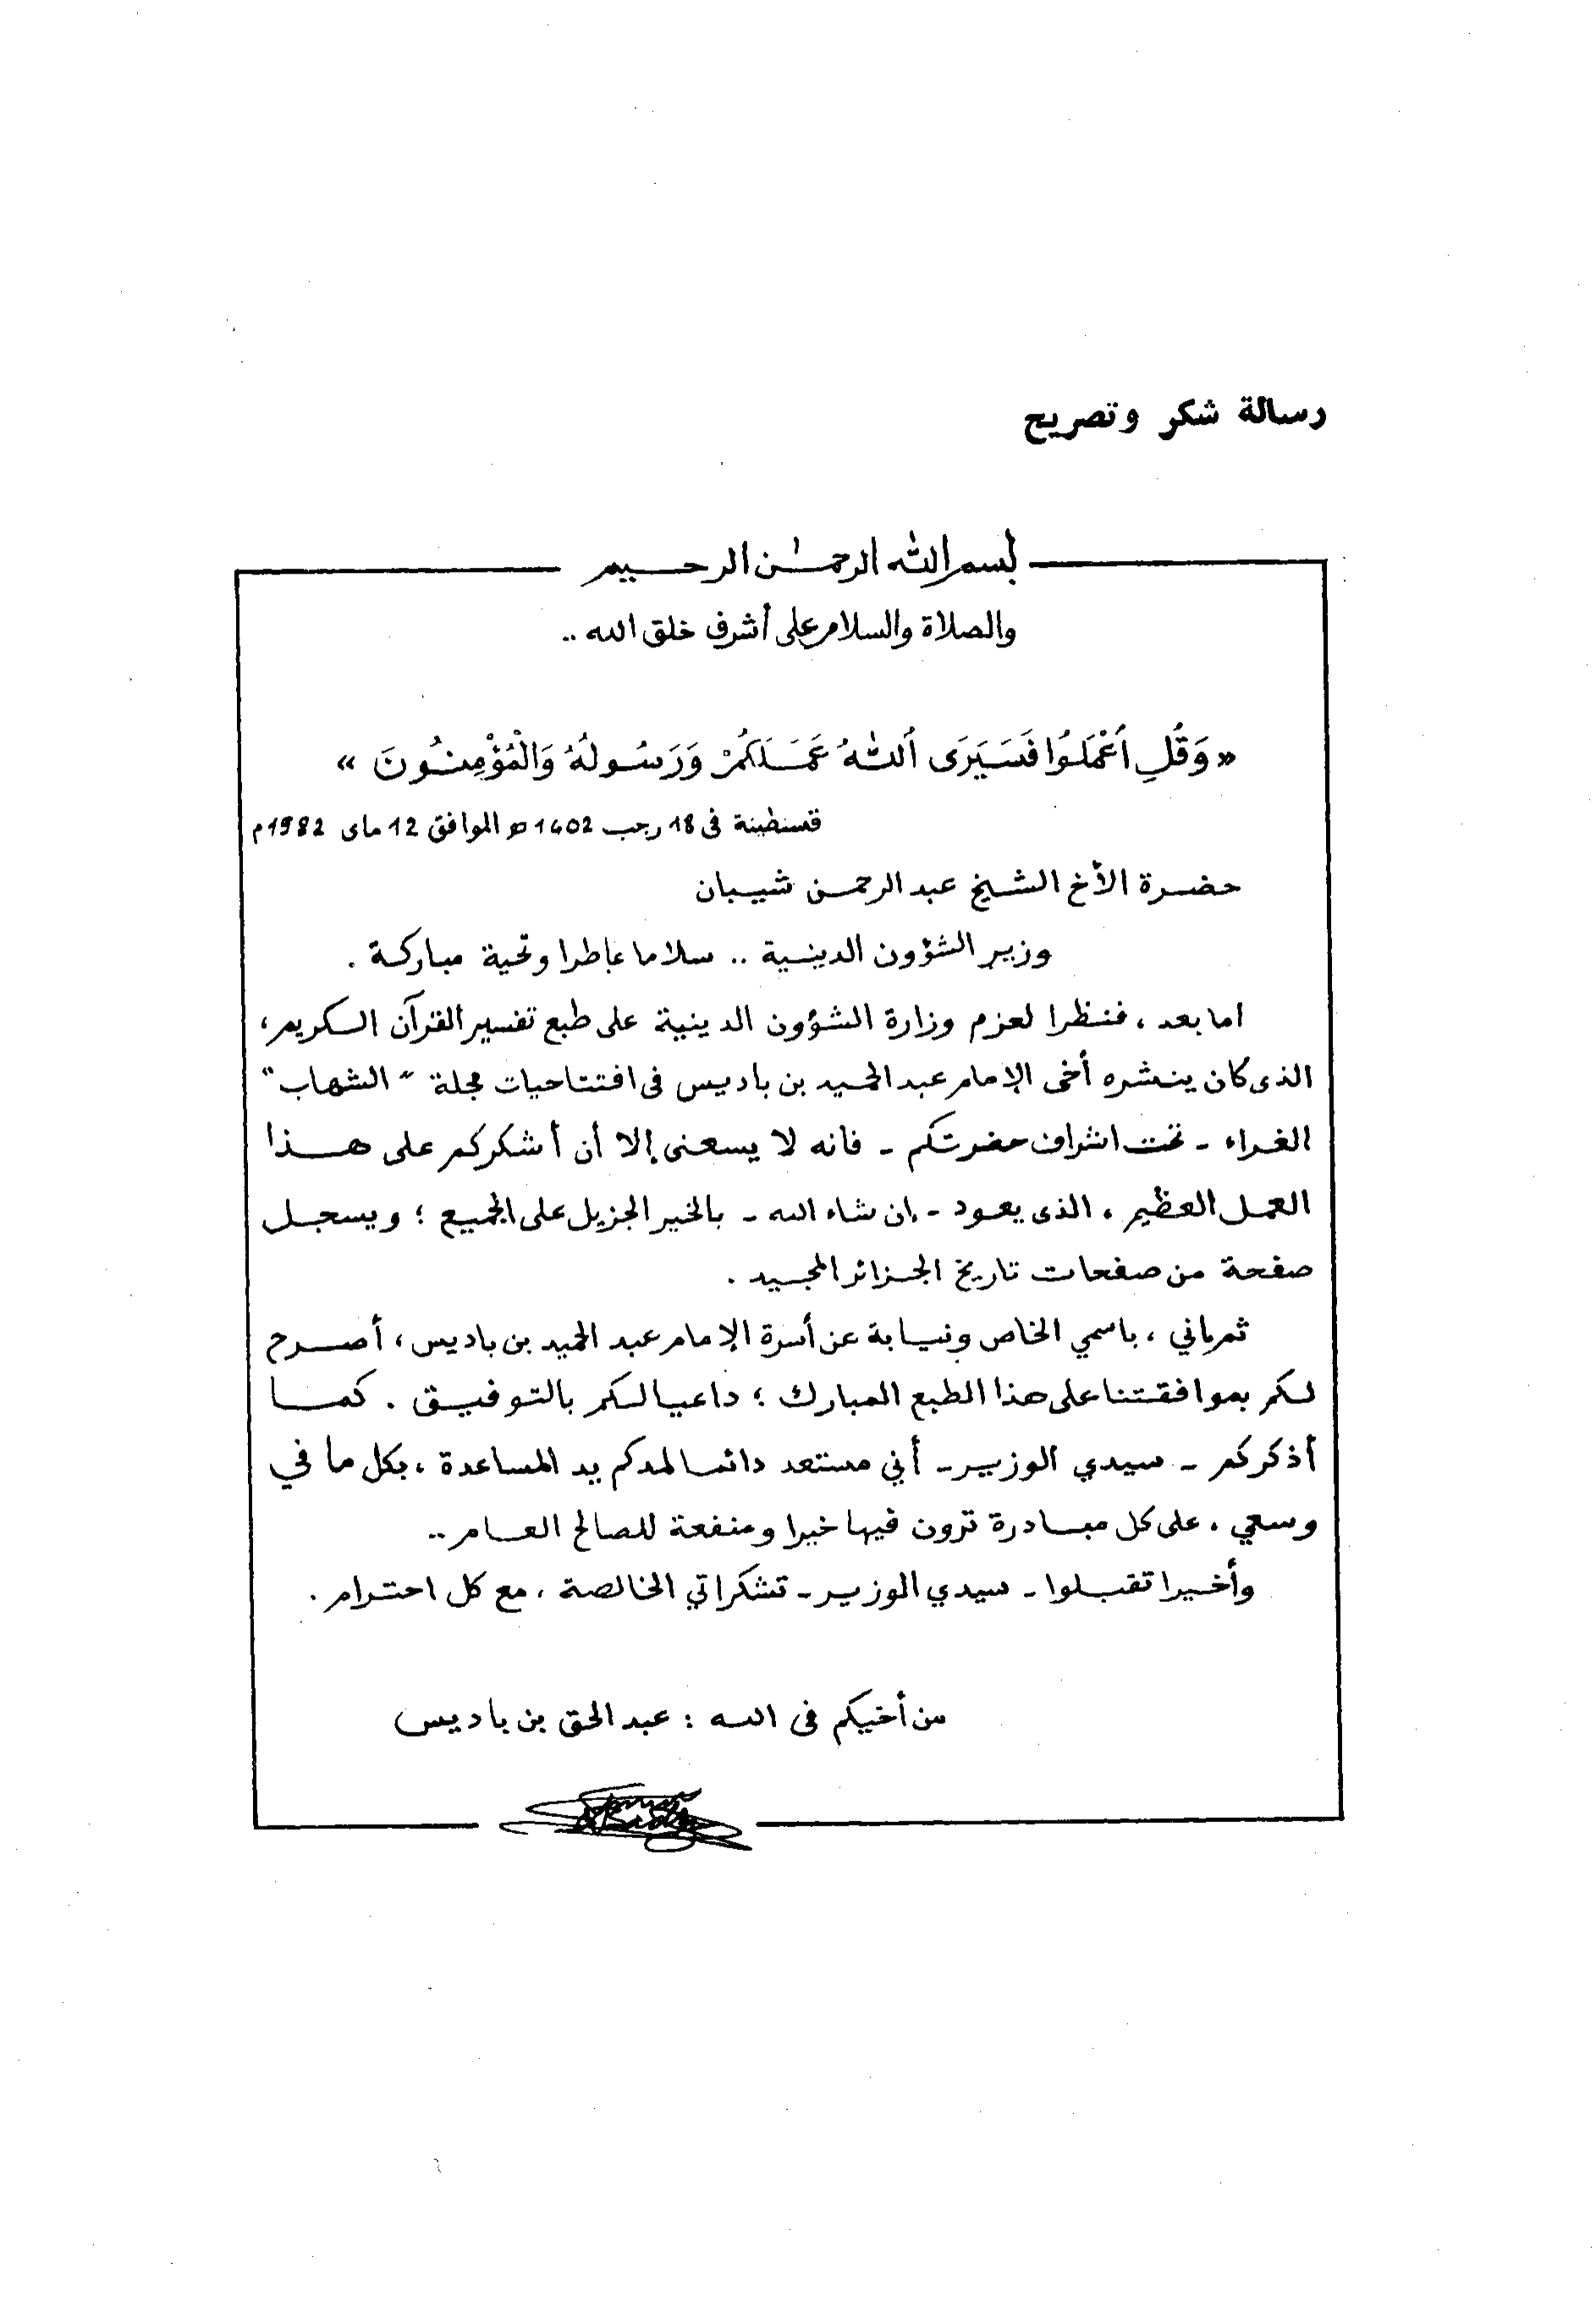 رسالة شكر وتصريح
بسم الله الرحمٰن الرحيم
والصلاة والسلام على أشرف خلق الله ..
« وَقُلِ اَعْمَلُوا فَسَيَرَى اَللهُ عَمَلَكُمْ وَرَسُولُهُ وَالْمُؤْمِنُونَ »
قسنطينة فى 18 رجب 1402 هـ الموافق 12 ماى 1982م
حضرة الأخ الشيخ عبد الرحمن شيبان
وزير الشؤون الدينية .. سلاما عاطرا وتحية مباركة .
اما بعد ، فنظرا لعزم وزارة الشؤون الدينية على طبع تفسير القرآن الكريم ،
الذى كان ينشره أخى الإمام عبد الحميد بن باديس فى افتتاحيات مجلة " الشهاب "
الغراء - تحت اشراف حضرتكم - فانه لا يسعنى إلا أن أشكركم على هذا
العمل العظيم ، الذى يعود - إن شاء الله - بالخير الجزيل على الجميع ؛ ويسجل
صفحة من صفحات تاريخ الجزائر المجيد .
ثم إني ، باسمي الخاص ونيابة عن أسرة الإمام عبد الحميد بن باديس ، أصرح
لكم بموافقتنا على هذا الطبع المبارك ؛ داعيا لكم بالتوفيق . كما
أذكركم - سيدي الوزير - أني مستعد دائما لمدكم يد المساعدة ، بكل ما في
وسعي ، على كل مبادرة ترون فيها خيرا ومنفعة للصالح العام ..
وأخيرا تقبلوا - سيدي الوزير - تشكراتي الخالصة ، مع كل احترام .
من أخيكم فى الله : عبد الحق بن باديس